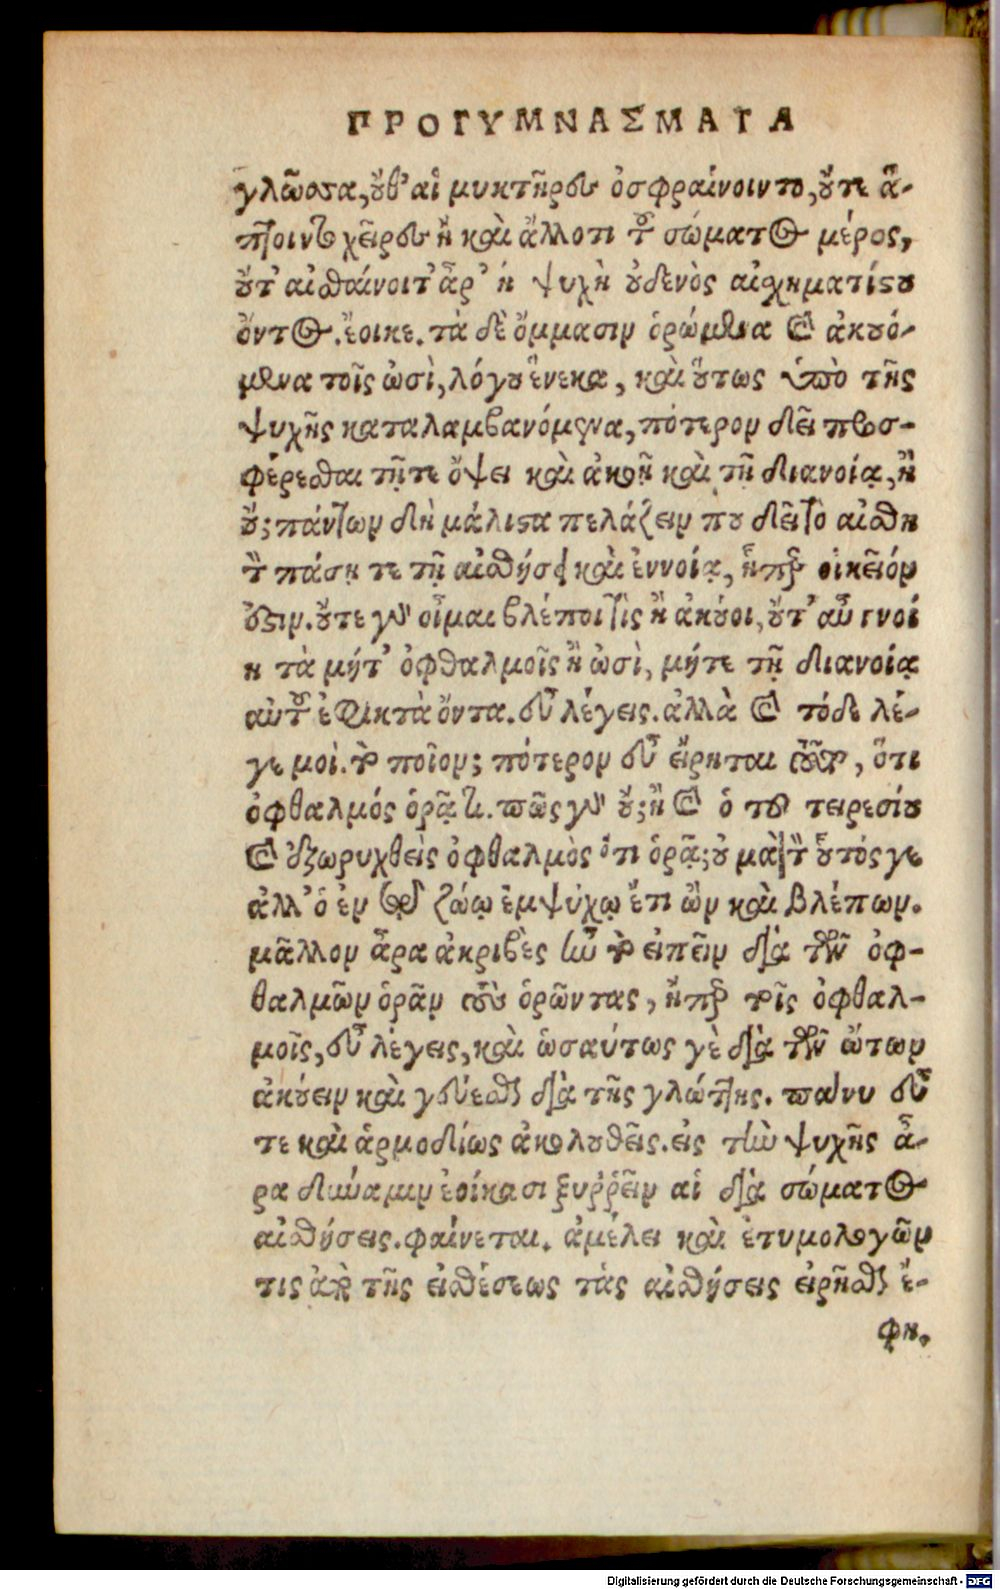 ΠΡΟΓΥΜΝΑΣΜΑΤΑ
γλῶσσα, ὔθ' αἱ μυκτῆρες ὀσφραίνοιντο, ὔτε ἅ-
πτοιντο χεῖρες ἢ καὶ ἄλλο τι τοῦ σώματος μέρος,
ὔτ' αἰσθάνοιτ' ἆρ' ἡ ψυχὴ ὐδενὸς αἰσχηματίστου
ὄντος. ἔοικε. τὰ δὲ ὄμμασιν ὁρώμενα καὶ ἀκυό-
μενα τοῖς ὠσὶ, λόγυ ἕνεκα, καὶ ὕτως ὑπὸ τῆς
ψυχῆς καταλαμβανόμενα, πότερον δεῖ προσ-
φέρεσθαι τῇ τε ὄψει καὶ ἀκοῇ καὶ τῇ διανοίᾳ, ἢ
ὔ; πάντων δὴ μάλιστα πελάζειν που δεῖ τὸ αἰσθη
τὸν πάσῃ τε τῇ αἰσθήσει καὶ ἐννοίᾳ, ᾗπερ οἰκεῖόν
ἐστιν. ὔτε γὰρ οἶμαι βλέποι τὶς ἢ ἀκύοι, ὔτ' αὖ γνοί
η τὰ μήτ' ὀφθαλμοῖς ἢ ὠσὶ, μήτε τῇ διανοίᾳ
αὐτοῦ ἐφικτὰ ὄντα. εὖ λέγεις. ἀλλὰ καὶ τόδε λέ-
γε μοι. τὸ ποῖον; πότερον εὖ εἴρηται τοῦτο, ὅτι
ὀφθαλμός ὁρᾷ τι. πῶς γὰρ ὔ; ἢ καὶ ὁ τοῦ τειρεσίυ
καὶ ἐξωρυχθεὶς ὀφθαλμὸς ὅτι ὁρᾷ; ὐ μὰ τὸν ὗτός γε
ἀλλ' ὁ ἐν τῷ ζώῳ ἐμψύχῳ ἔτι ὢν καὶ βλέπων.
μᾶλλον ἆρα ἀκριβὲς ἦν τὸ εἰπεῖν διὰ τῶν ὀφ-
θαλμῶν ὁρᾷν τοὺς ὁρῶντας, ἤπερ τοῖς ὀφθαλ-
μοῖς, εὖ λέγεις, καὶ ὡσαύτως γὲ διὰ τῶν ὤτων
ἀκύειν καὶ γεύεσθαι διὰ τῆς γλώττης. πάνυ εὖ
τε καὶ ἁρμοδίως ἀκολυθεῖς. εἰς τὴν ψυχῆς ἄ-
ρα δύναμιν ἐοίκασι ξυῤῥεῖν αἱ διὰ σώματος
αἰσθήσεις. φαίνεται. ἀμέλει καὶ ἐτυμολογῶν
τις ἀπὸ τῆς εἰσθέσεως τὰς αἰσθήσεις εἰρῆσθαι ἔ-
φη.
Digitalisierung gefördert durch die Deutsche Forschungsgemeinschaft - DFG